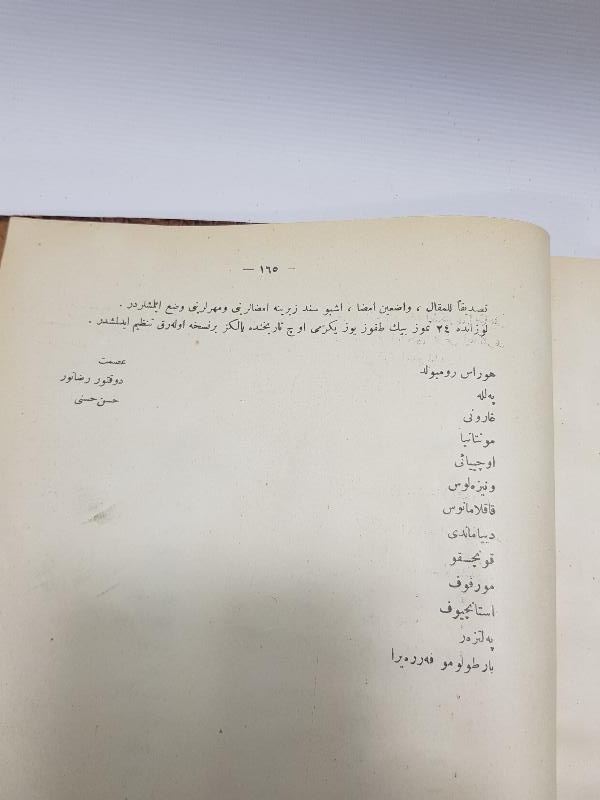 — ١٦٥ —
تصديقاً للمقال ، واضعين امضا ، اشبو سند زيرينه امضالرينى ومهرلرينى وضع ايتمشلردر .
لوزانده ٢٤ تموز بيك طقوز يوز يكرمى اوچ تاريخنده يالكز برنسخه اوله‌رق تنظيم ايدلمشدر .
هوراس رومبولد
په‌للە
غارونى
مونتانيا
اوچيياى
ونيزه‌لوس
قاقلامانوس
دياماندى
قونچسقو
مورفوف
استانچيوف
په‌لتزه‌ر
بارطولومو فه‌رره‌يرا
عصمت
دوقتور رضانور
حسن حسنى